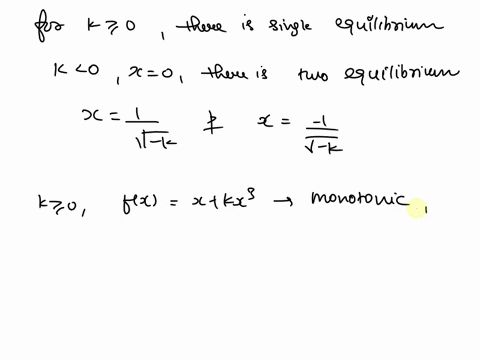 for k ≥ 0 , there is single equilibrium
k < 0 , x = 0 , there is two equilibrium
x = 1/√-k & x = -1/√-k
k ≥ 0 , f(x) = x + kx³ → monotonic ,